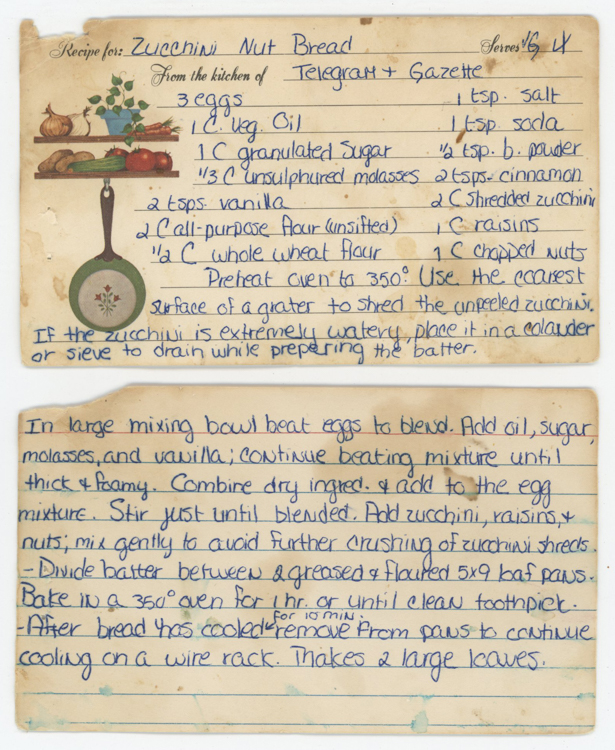 Recipe for: Zucchini Nut Bread Serves
From the kitchen of Telegram + Gazette
3 eggs 1 tsp. salt
1 C. Veg. Oil 1 tsp. soda
1 C granulated Sugar 1/2 tsp. b. powder
1/3 C unsulphured molasses 2 tsps. cinnamon
2 tsps. vanilla 2 C shredded zucchini
2 C all-purpose flour (unsifted) 1 C raisins
1/2 C whole wheat flour 1 C chopped nuts
Preheat oven to 350°. Use the coarest
surface of a grater to shred the unpeeled zucchini.
If the zucchini is extremely watery, place it in a colander
or sieve to drain while prepering the batter.
In large mixing bowl beat eggs to blend. Add oil, sugar,
molasses, and vanilla; continue beating mixture until
thick & foamy. Combine dry ingred. & add to the egg
mixture. Stir just until blended. Add zucchini, raisins, &
nuts; mix gently to avoid further crushing of zucchini shreds.
- Divide batter between 2 greased & floured 5x9 loaf pans.
Bake in a 350° oven for 1 hr. or until clean toothpick.
for 15 min.
- After bread has cooled remove from pans to continue
cooling on a wire rack. Makes 2 large loaves.